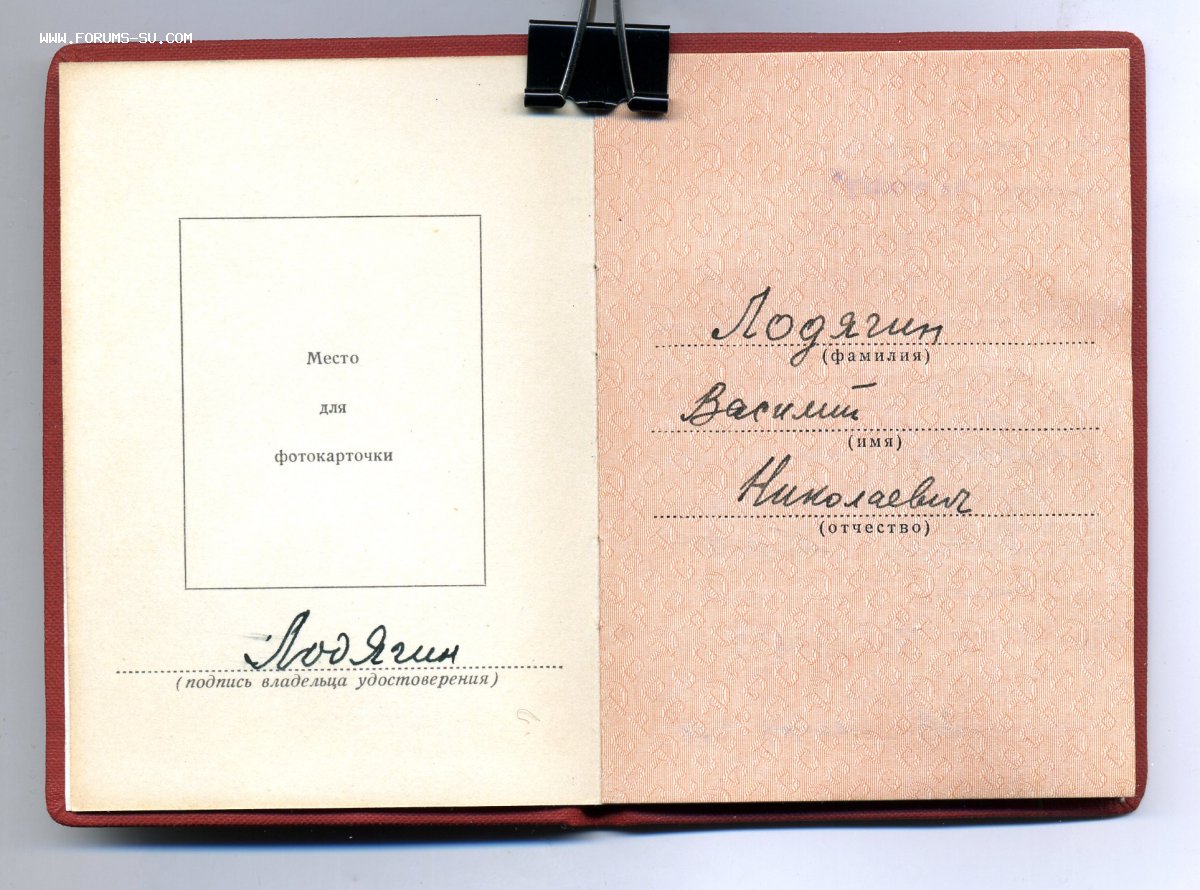 WWW.FORUMS-SU.COM
Место
для
фотокарточки
Лодягин
(подпись владельца удостоверения)
Лодягин
(фамилия)
Василий
(имя)
Николаевич
(отчество)